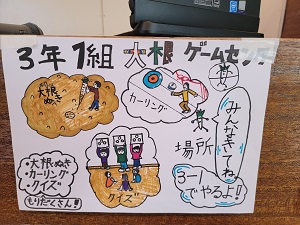 3年1組 大根 ゲームセンター
大根ぬき
カーリング
みんなきてね
場所
3-1
でやるよ!!
・大根ぬき
・カーリング
・クイズ
もりだくさん!!
クイズ